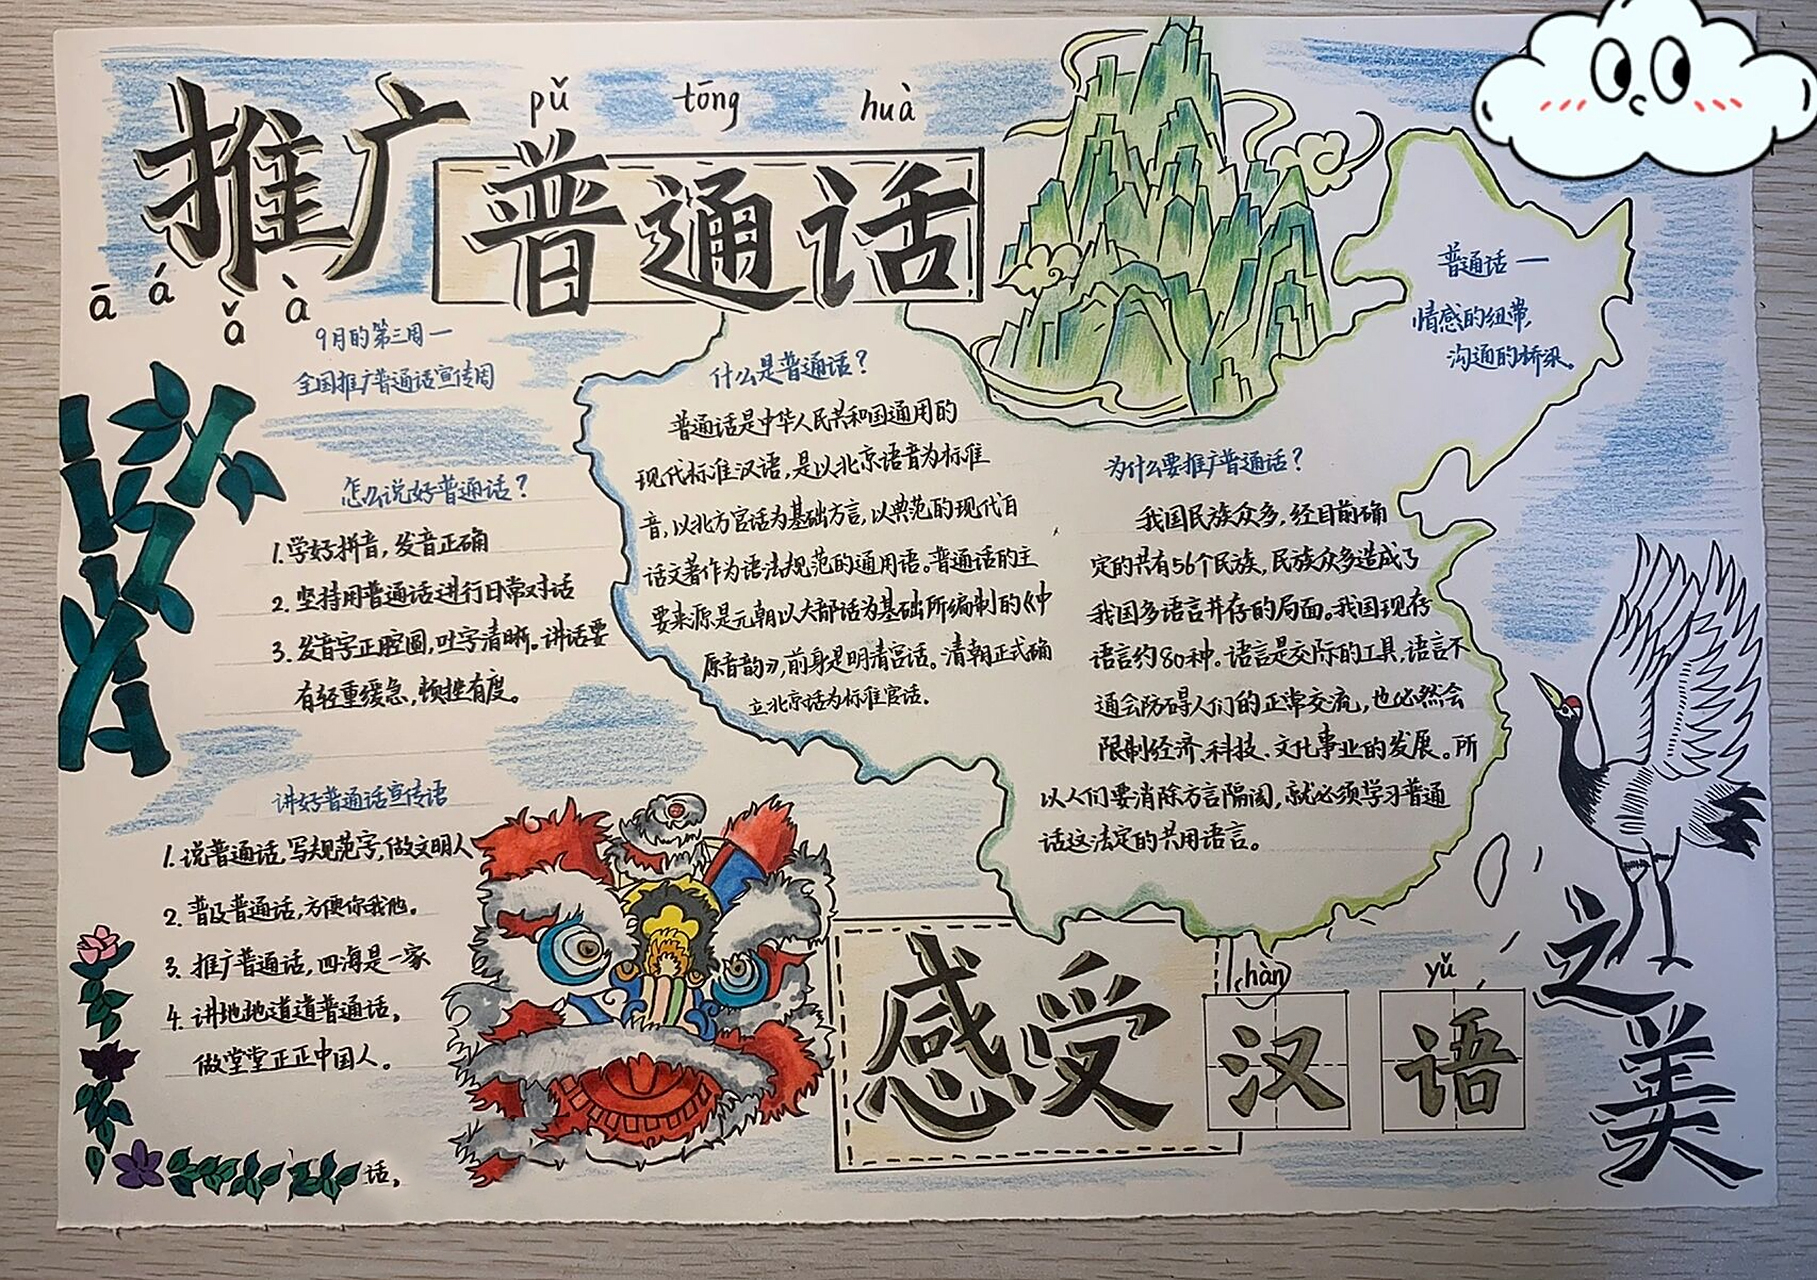 pǔ tōng huà
推广普通话
ā á ǎ à
9月的第三周一
全国推广普通话宣传周
怎么说好普通话？
1.学好拼音，发音正确
2.坚持用普通话进行日常对话
3.发音字正腔圆，吐字清晰。讲话要
有轻重缓急，顿挫有度。
讲好普通话宣传语
1.说普通话，写规范字，做文明人
2.普及普通话，方便你我他。
3.推广普通话，四海是一家
4.讲地地道道普通话，
做堂堂正正中国人。
话，
什么是普通话？
普通话是中华人民共和国通用的
现代标准汉语，是以北京语音为标准
音，以北方官话为基础方言，以典范的现代白
话文著作为语法规范的通用语。普通话的主
要来源是元朝以大都话为基础所编制的《中
原音韵》，前身是明清官话。清朝正式确
立北京话为标准官话。
普通话一
情感的纽带，
沟通的桥梁。
为什么要推广普通话？
我国民族众多，经目前确
定的共有56个民族，民族众多造成了
我国多语言并存的局面。我国现存
语言约80种。语言是交际的工具，语言不
通会防碍人们的正常交流，也必然会
限制经济、科技、文化事业的发展。所
以人们要消除方言隔阂，就必须学习普通
话这法定的共用语言。
hàn yǔ
感受汉语
之美